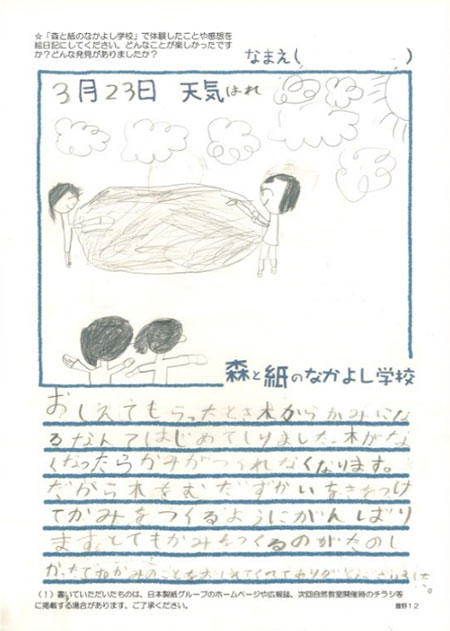 ☆「森と紙のなかよし学校」で体験したことや感想を
絵日記にしてください。どんなことが楽しかったです
か？どんな発見がありましたか？
なまえ(　　　　　)
3月23日 天気 はれ
森と紙のなかよし学校
おしえてもらったとき木からかみにな
るなんてはじめてしりました。木がな
くなったらかみがつくれなくなります。
だから木をむだずかいをきをつけ
てかみをつくるようにがんばり
ます。とてもかみをつくるのがたのし
かったです。かみのことをおしえてくれてありがとうございました。
(！) 書いていただいたものは、日本製紙グループのホームページや広報誌、次回自然教室開催時のチラシ等
に掲載する場合があります。ご了承ください。
鹿野12